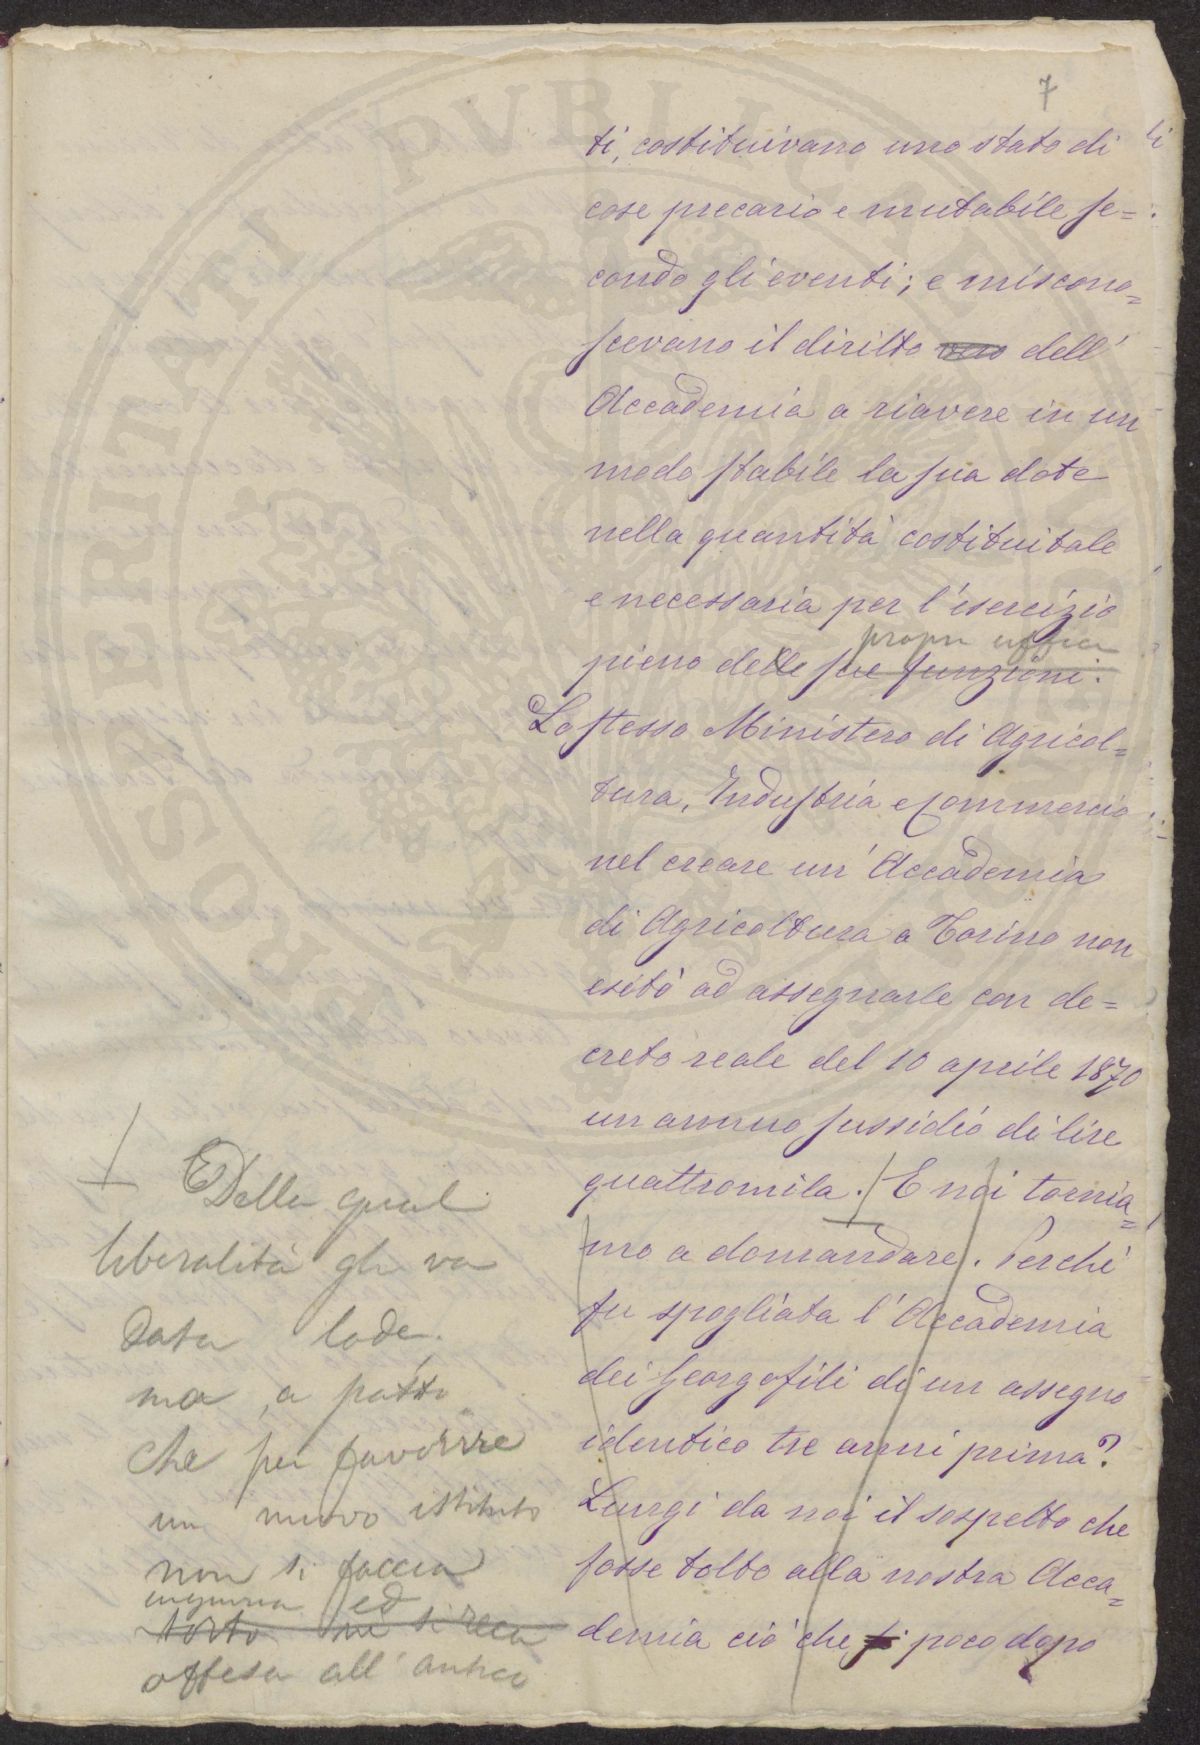 7
ti, costituivano uno stato di
cose precario e mutabile se=
condo gli eventi; e miscono=
scevano il diritto dell'
Accademia a riavere in un
modo stabile la sua dote
nella quantità costituitale
e necessaria per l'esercizio
proprii uffici
pieno delle sue funzioni.
Lo stesso Ministero di Agricol=
tura, Industria e Commercio
nel creare un'Accademia
di Agricoltura a Torino non
esitò ad assegnarle con de=
creto reale del 10 aprile 1870
un annuo sussidio di lire
quattromila. E noi tornia=
mo a domandare. Perché
fu spogliata l'Accademia
dei Georgofili di un assegno
identico tre anni prima?
Lungi da noi il sospetto che
fosse tolto alla nostra Acca=
demia ciò che poco dopo
Della qual
liberalità gli va
data lode.
ma, a patto
che per favorire
un nuovo istituto
non si faccia
ingiuria ed
torto né si reca
offesa all'antico
PVBLICAE